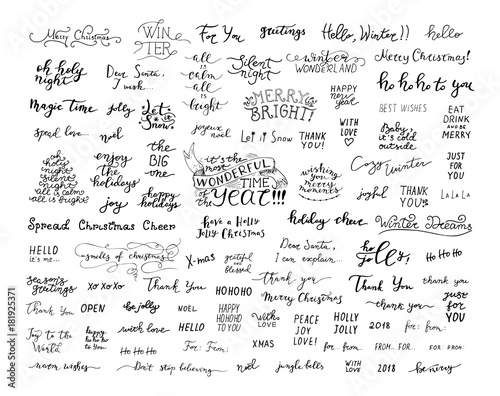 Merry Christmas
WINTER
For You
greetings
Hello, Winter!!
hello
oh holy night
Dear Santa, I wish...
all is calm all is bright
Silent night
winter WONDERLAND
Merry Christmas!
HAPPY new year
ho ho ho to you
Magic time
jolly
Let it Snow!
MERRY & BRIGHT!
BEST WISHES
EAT DRINK AND BE MERRY
spead love
noël
joyeux noël
Let it Snow
THANK YOU!
WITH LOVE
Baby, it's cold outside
oh holy night silent night all is calm all is bright
enjoy the holidays
the BIG one
it's the most WONDERFUL TIME of the YEAR!!!
wishing you merry moments
Cozy winter
JUST FOR YOU
joy
happy holidays
joyful
THANK YOU!
LaLaLa
Spread Christmas Cheer
have a Holly Jolly Christmas
holiday cheer
Winter Dreams
HELLO it's me...
smells of christmas
X-mas
grateful and blessed
Dear Santa, I can explain...
ho holly jolly!
Ho Ho Ho
season's greetings
xo xo xo
Thank You
HOHOHO
Thank you
Merry Christmas
Thank You
thank you
Thank You
OPEN
be jolly
NOEL
HAPPY HOHOHO TO YOU
thank you
just for YOU
Joy to the World
happy ho ho ho to You
with love
HELLO
With LOVE
PEACE JOY LOVE!
HOLLY JOLLY
2018
for: from:
Ho Ho Ho
For: From:
XMAS
for: from:
FOR: FROM:
warm wishes
Don't stop believing
noël
jingle bells
WITH LOVE
2018
be merry
Adobe Stock | #181925371